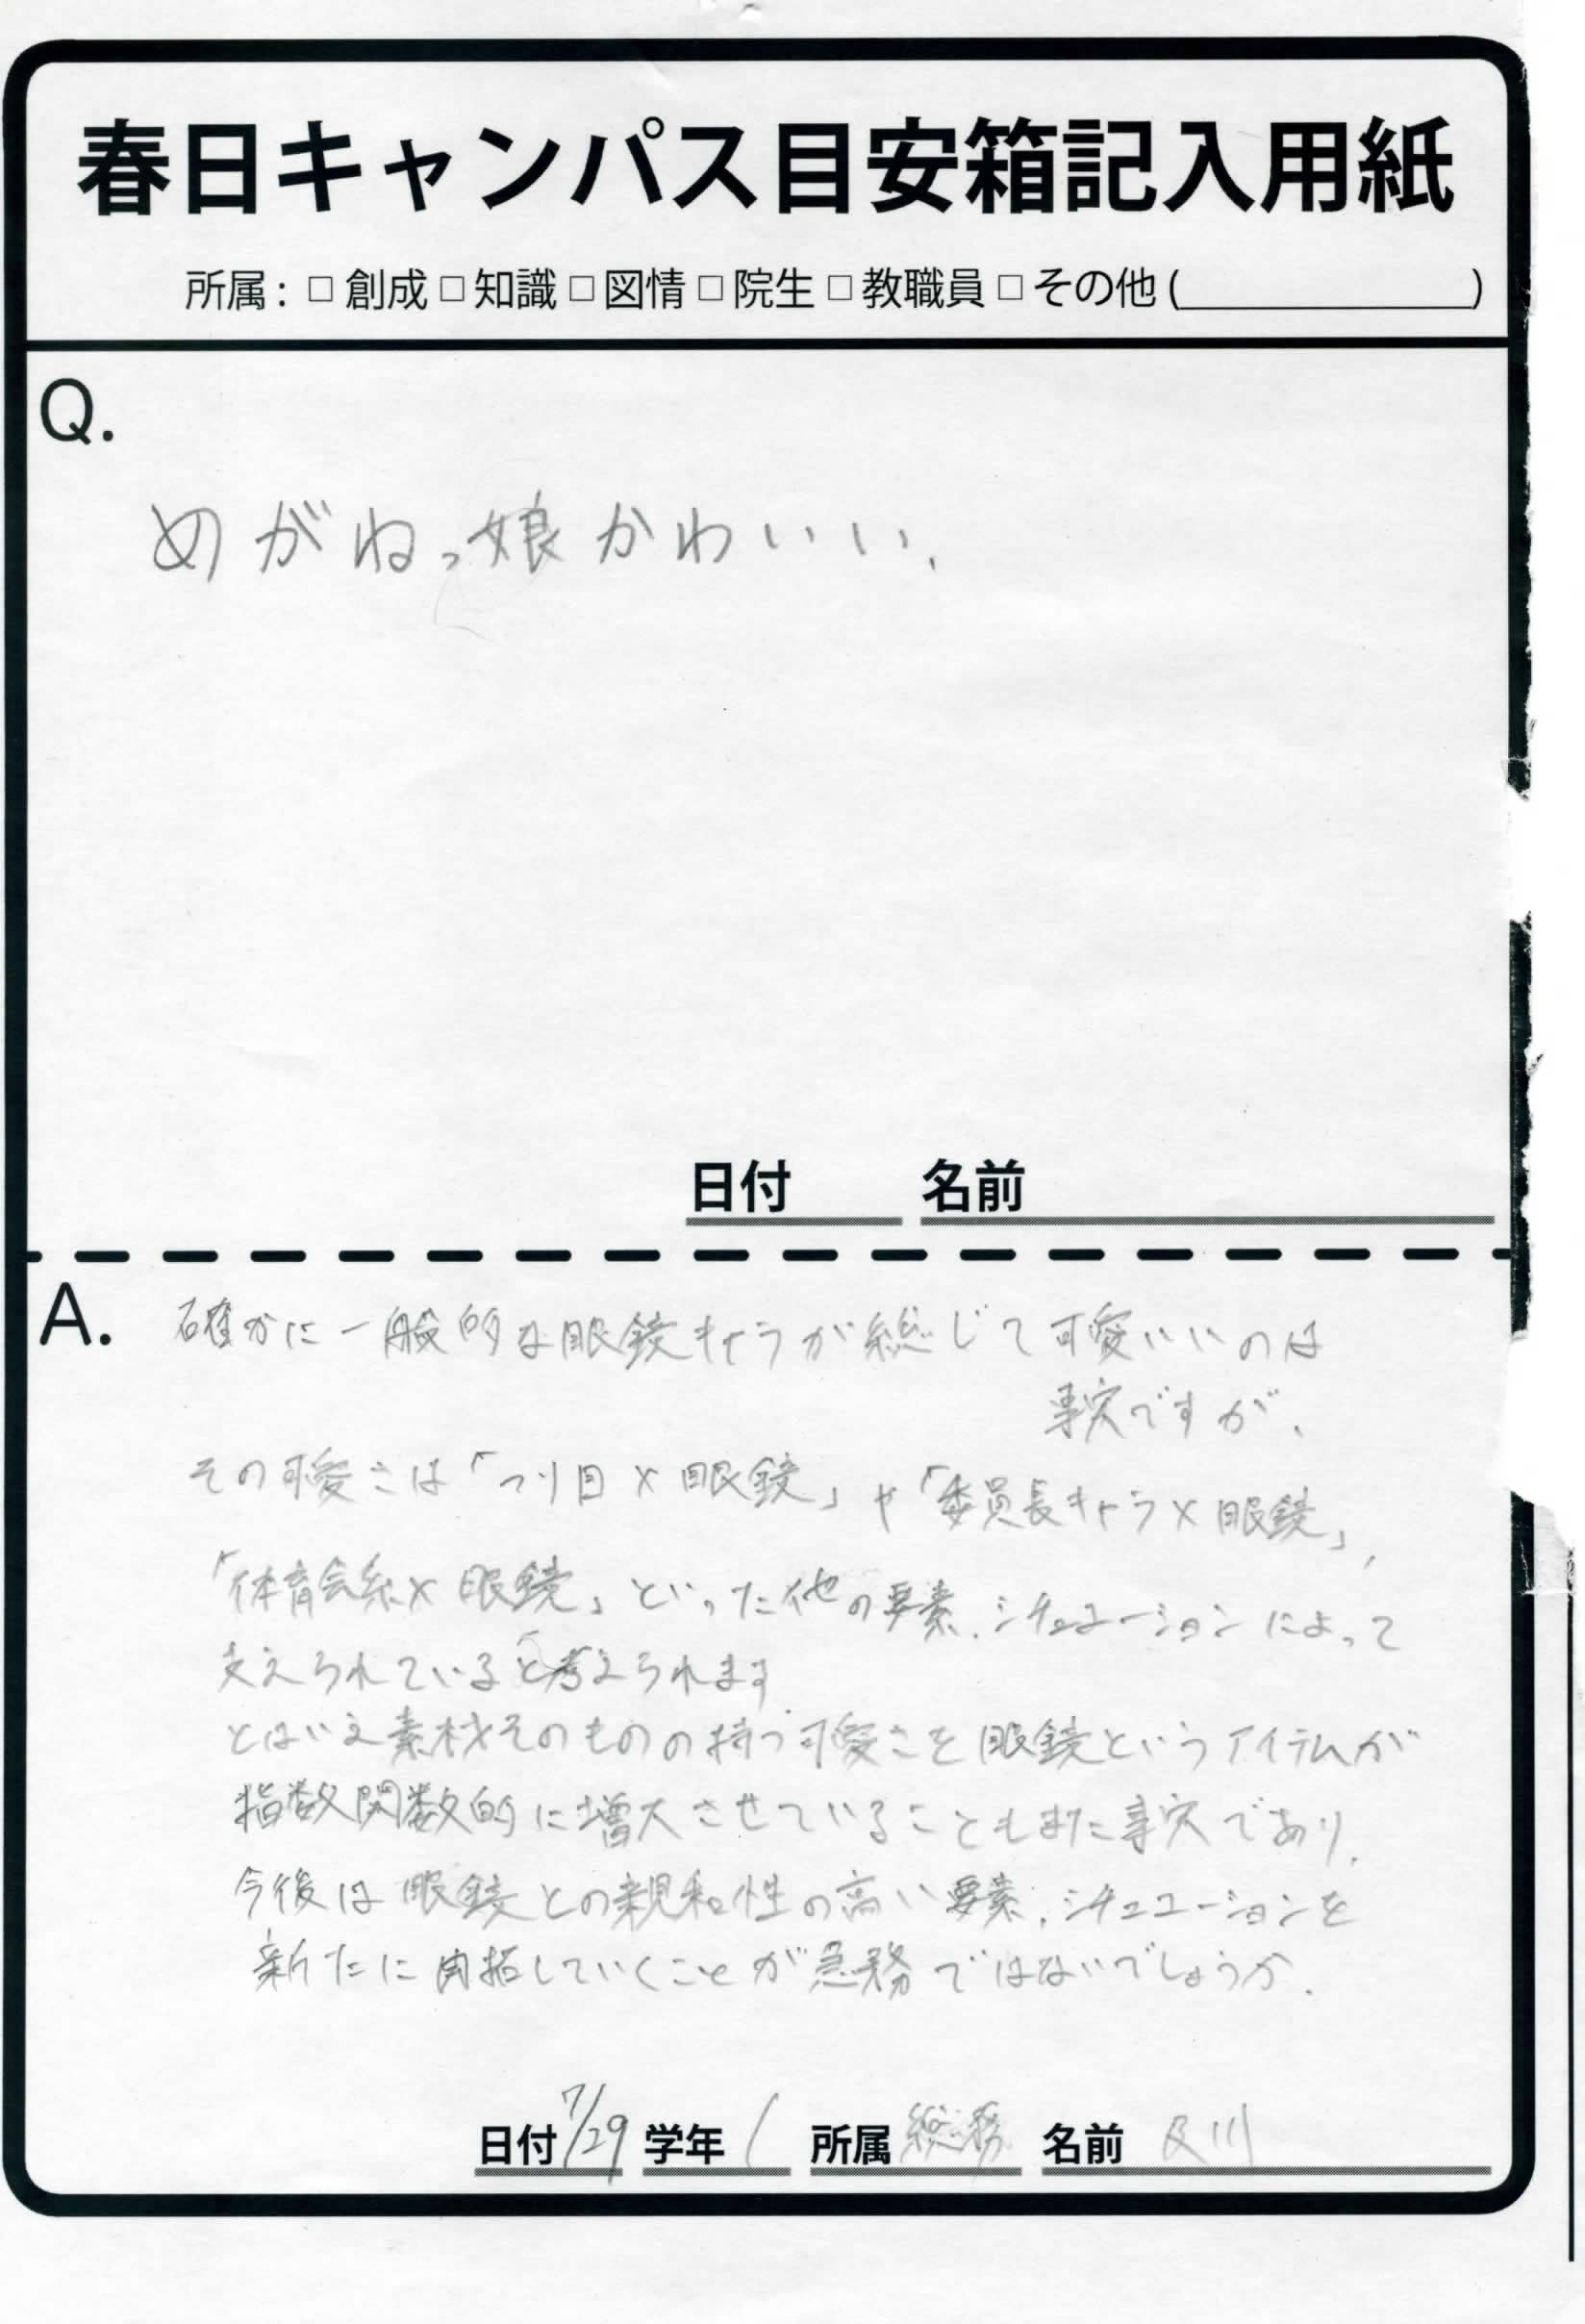 春日キャンパス目安箱記入用紙
所属: □ 創成 □ 知識 □ 図情 □ 院生 □ 教職員 □ その他 (                )
Q.
めがねっ娘かわいい、
日付 名前
A. 確かに一般的な眼鏡キャラが総じて可愛いいのは
事実ですが、
その可愛さは「つり目×眼鏡」や「委員長キャラ×眼鏡」、
「体育会系×眼鏡」といった他の要素、シチュエーションによって
支えられていると考えられます
とはいえ素材そのものの持つ可愛さを眼鏡というアイテムが
指数関数的に増大させていることもまた事実であり、
今後は眼鏡との親和性の高い要素、シチュエーションを
新たに開拓していくことが急務ではないでしょうか.
日付 7/29 学年 1 所属 総務 名前 及川